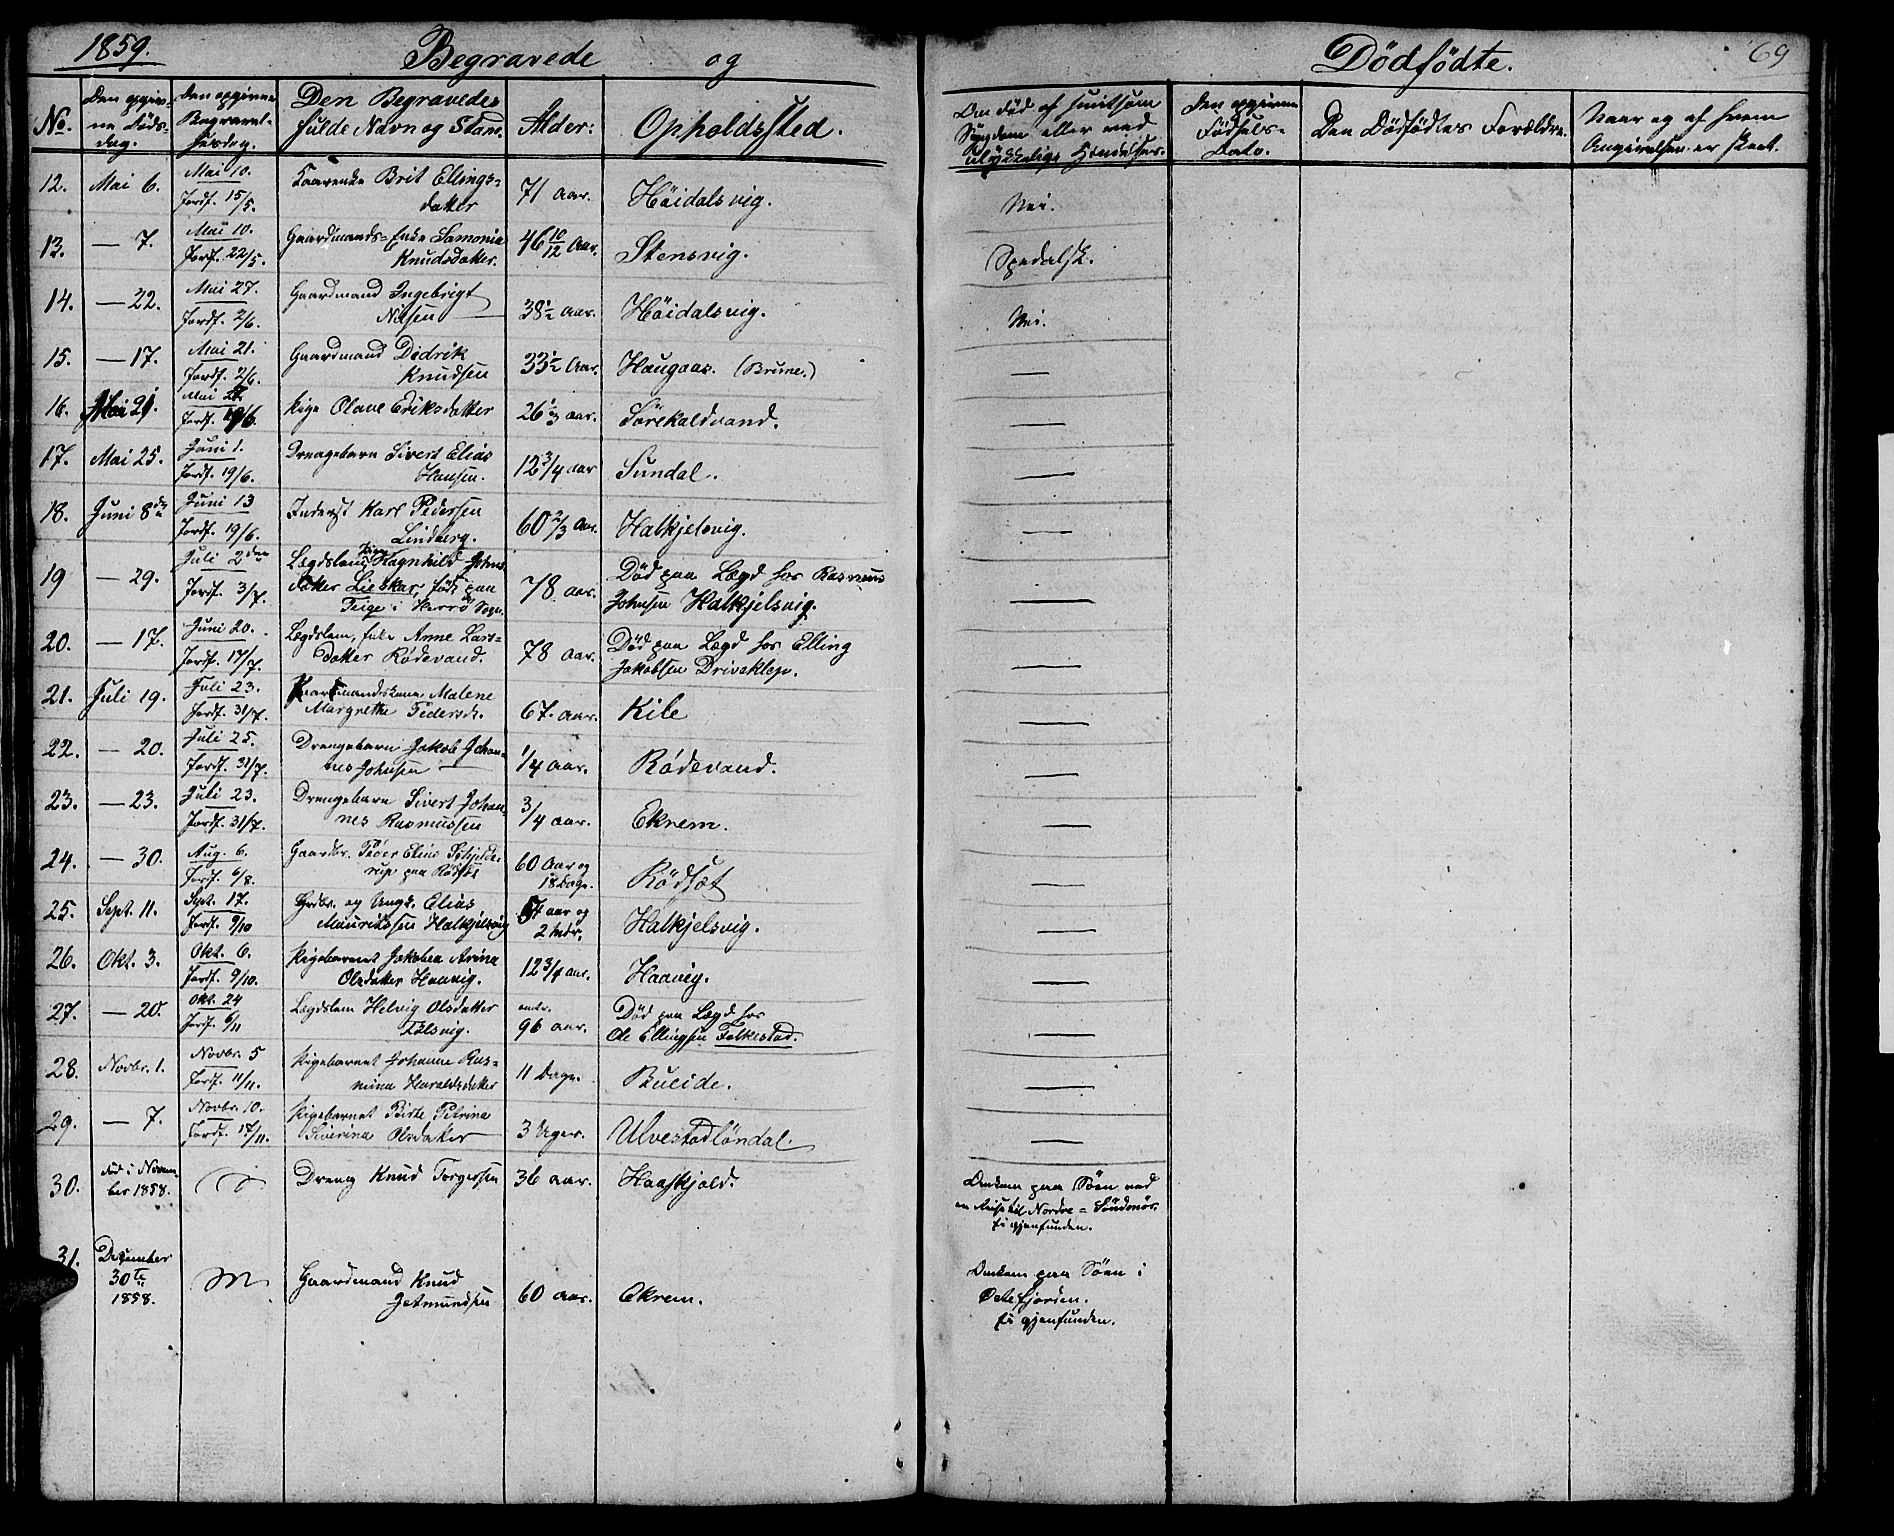 1859.
Begravede og
Dödfödte.
69
No.
Den opgiv-
ne Döds-
dag.
Den opgivne
Begravel-
sesdag.
Den Begravedes
fulde Navn og Stand.
Alder:
Opholdssted.
Om död af smitsom
Sygdom eller ved
ulykkelige Hændelser.
Den opgivne
Födsels-
Dato.
Den Dödfödtes Forældre.
Naar og af hvem
Angivelsen er skeet.
12. Mai 6. Mai 10. Jordf. 15/5. Brit Ellings-
datter 71 Aar. Höidalsvig. Nei.
13. — 7. Mai 10. Jordf. 22/5. Gaardmands-Enke Samonia
Knudsdatter. 46 10/12 Aar. Stensvig. Spedalsk.
14. — 22. Mai 27. Jordf. 2/6. Gaardmand Ingebrigt
Nilsen 38½ Aar. Höidalsvig. Nei.
15. — 17. Mai 21. Jordf. 2/6. Gaardmand Didrik
Knudsen 33½ Aar. Haugaas. (Brune.) —
16. Mai 21. Mai Jordf. 19/6. Pige Olave Eriksdatter 26 1/3 Aar. Sörekaldvand. —
17. Mai 25. Juni 1. Jordf. 19/6. Drengebarn Sivert Elias
Hansen. 12 3/4 Aar Sundal. —
18. Juni 8de Juni 13 Jordf. 19/6. Inderst Karl Pedersen
Lindberg. 60 2/3 Aar. Halkjelsvig. —
19 — 29. Juli 2den Jordf. 3/7. Lægdslem Pige Ragnhild Johns
datter Lieskar, född paa
Teige i Herrö Sogn. 78 Aar. Död paa Lægd hos Rasmus
Johnsen Halkjelsvig. —
20. — 17. Juni 20. Jordf. 17/7. Lægdslem, Anne Lars-
datter Rödevand. 78 Aar. Död paa Lægd hos Elling
Jakobsen Driveklep. —
21. Juli 19. Juli 23. Jordf. 31/7. Malene
Margrethe Pedersd. 67. Aar. Kile —
22. — 20. Juli 25. Jordf. 31/7. Drengebarn Jakob Johan-
nes Johnsen 1/4 Aar. Rödevand. —
23. — 23. Juli 23. Jordf. 31/7. Drengebarn Sivert Johan-
nes Rasmussen 3/4 Aar. Ekrem. —
24. — 30. Aug. 6. Jordf. 6/8. Gaardbr. Peder Elias Schjelde-
rup paa Rödset 60 Aar og
18 Dage. Rödsæt —
25. Sept. 11. Sept. 17. Jordf. 9/10 Grdbr. og Ungk. Elias
Mauritssen Halkjelsvig Aar og
2 Mdr. Halkjelsvig. —
26. Okt. 3. Okt. 6. Jordf. 9/10. Pigebarnet Jakobea Arina
Olsdatter Haavig. 12 3/4 Aar. Haavig. —
27. — 20. Okt. 24 Jordf. 6/11 Lægdslem Helvig Olsdatter
Fylsvig. 96 Aar. Död paa Lægd hos
Ole Ellingsen Folkestad. —
28. Novbr. 1. Novbr. 5 Jordf. 11/11. Pigebarnet Johanne Ras-
mina Haraldsdatter 11 Dage. Bueide. —
29. — 7. Novbr. 10. Jordf. 17/11. Pigebarnet Birte Petrina
Siverina Olsdatter 3 Uger. Ulvestadlöndal. —
30. död i Novem
ber 1858. Dreng Knud Torgersen 36 Aar. Haaskjold. Omkom paa Söen ved
en Reise til Nordre-Söndmör.
Ei gjenfunden.
31. December
30te
1858. Gaardmand Knud
Jetmundsen 60 Aar. Ekrem. Omkom paa Söen i
Örstefjorden.
Ei gjenfunden.